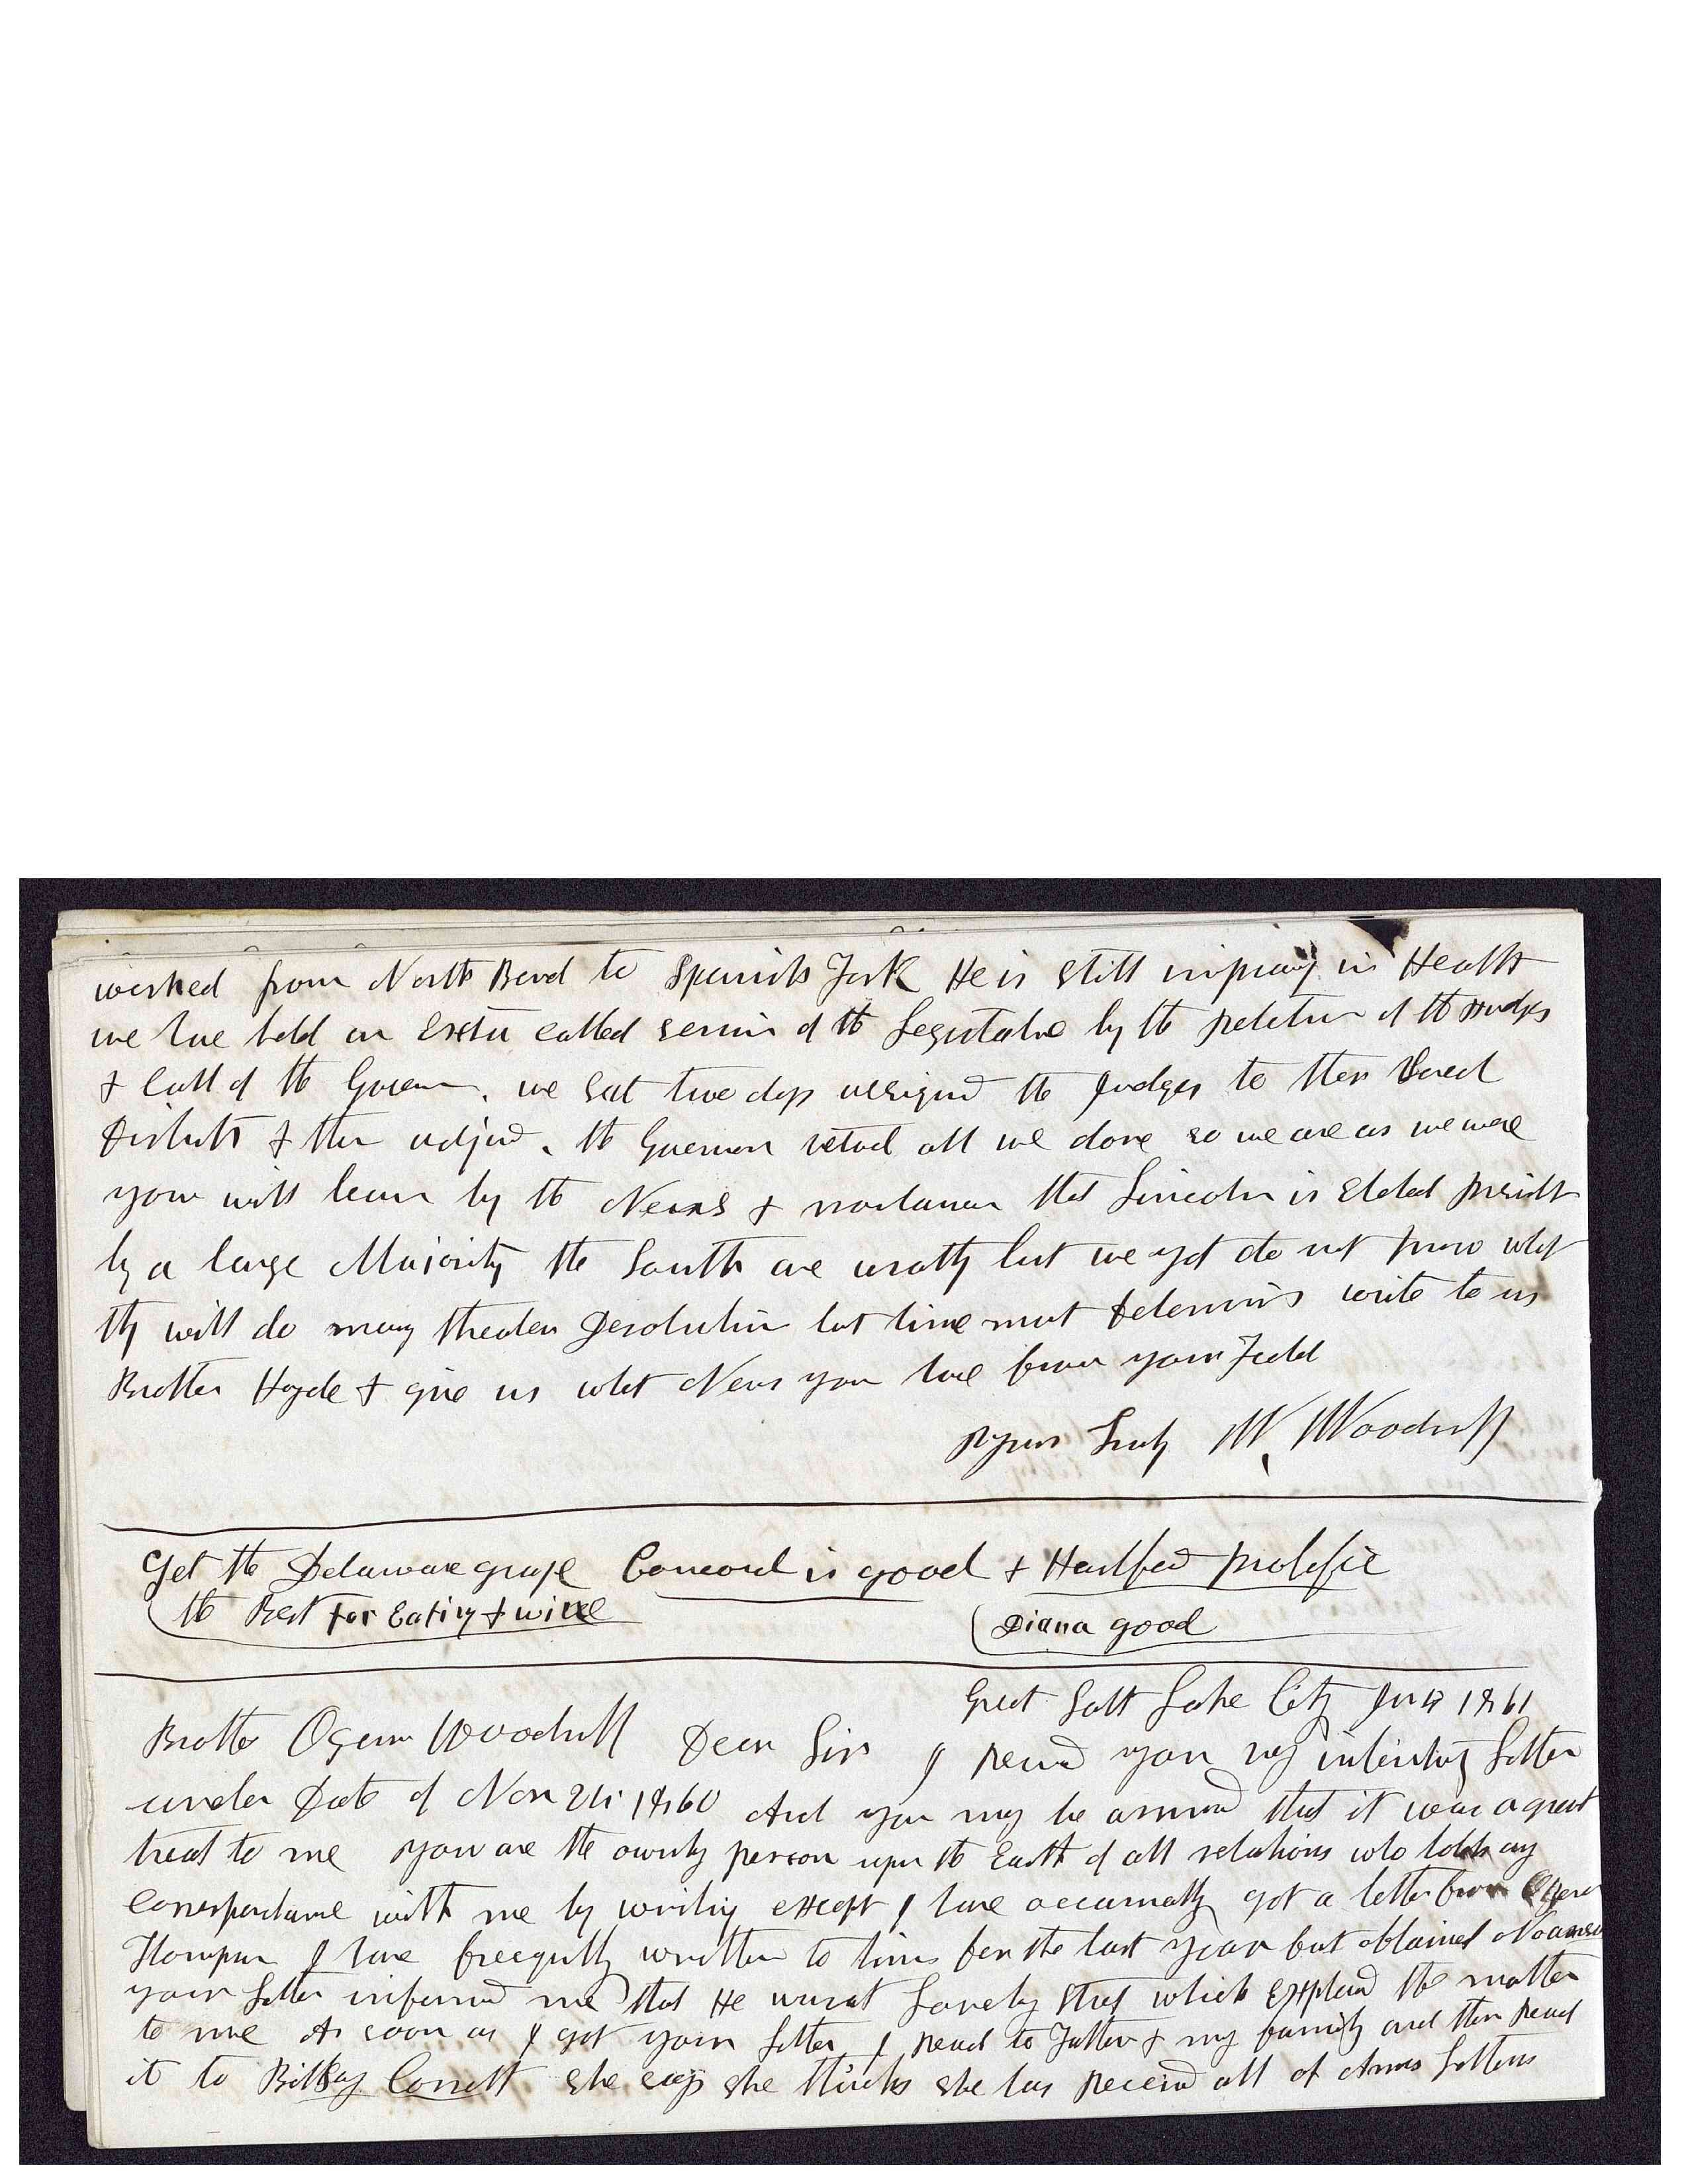 worked from North Bend to Spanish Fork He is still improving in Health
we have held an Extra called session of the Legislature by the petition of the Judges
& call of the Govenor. we sat two days assigned the Judges to their
Districts & then adjnd. the Governor vetoed all we done so we are as we were
you will learn by the News & that Lincoln is Elected president
by a large Majority the South are wrathy but we yet do not know what
they will do many threaten Desolution but time must determin write to us
Brother Hyde & give us what News you have from your Field
yours Truly W. Woodruff
Get the Delaware grape Concord is good & Hartford prolific
the Best For Eating & wine Diana good
Great Salt Lake City Jan 4 1861
Brother Ozem Woodruff Dear Sir I recvd your vey intersting Letter
under Date of Nov 24 1860 And you may be assured that it was a great
treat to me you are the ownly person upon the Earth of all relations who holds any
Correspondance with me by writing except I have occasionally got a letter from
Thompson I have freequtly written to him for the last year but obtained No answer
your Letter informed me that He was at Lovely Street which Explaind the matter
to me As soon as I got your Letter I read to Father & my family and then read
it to Bettsy Cossett she says she thinks she has receivd all of Letters